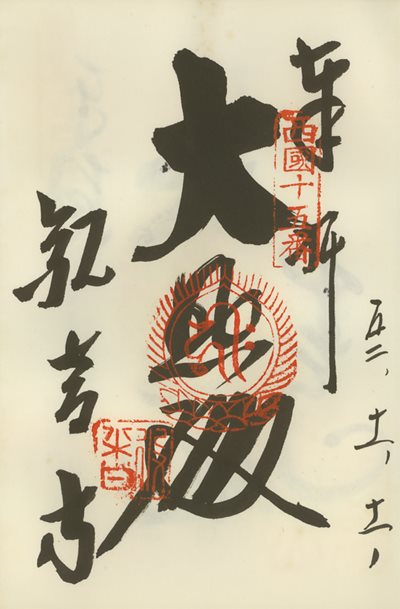 五二、十一、十一
奉拝
西國十五番
大悲殿
観音寺